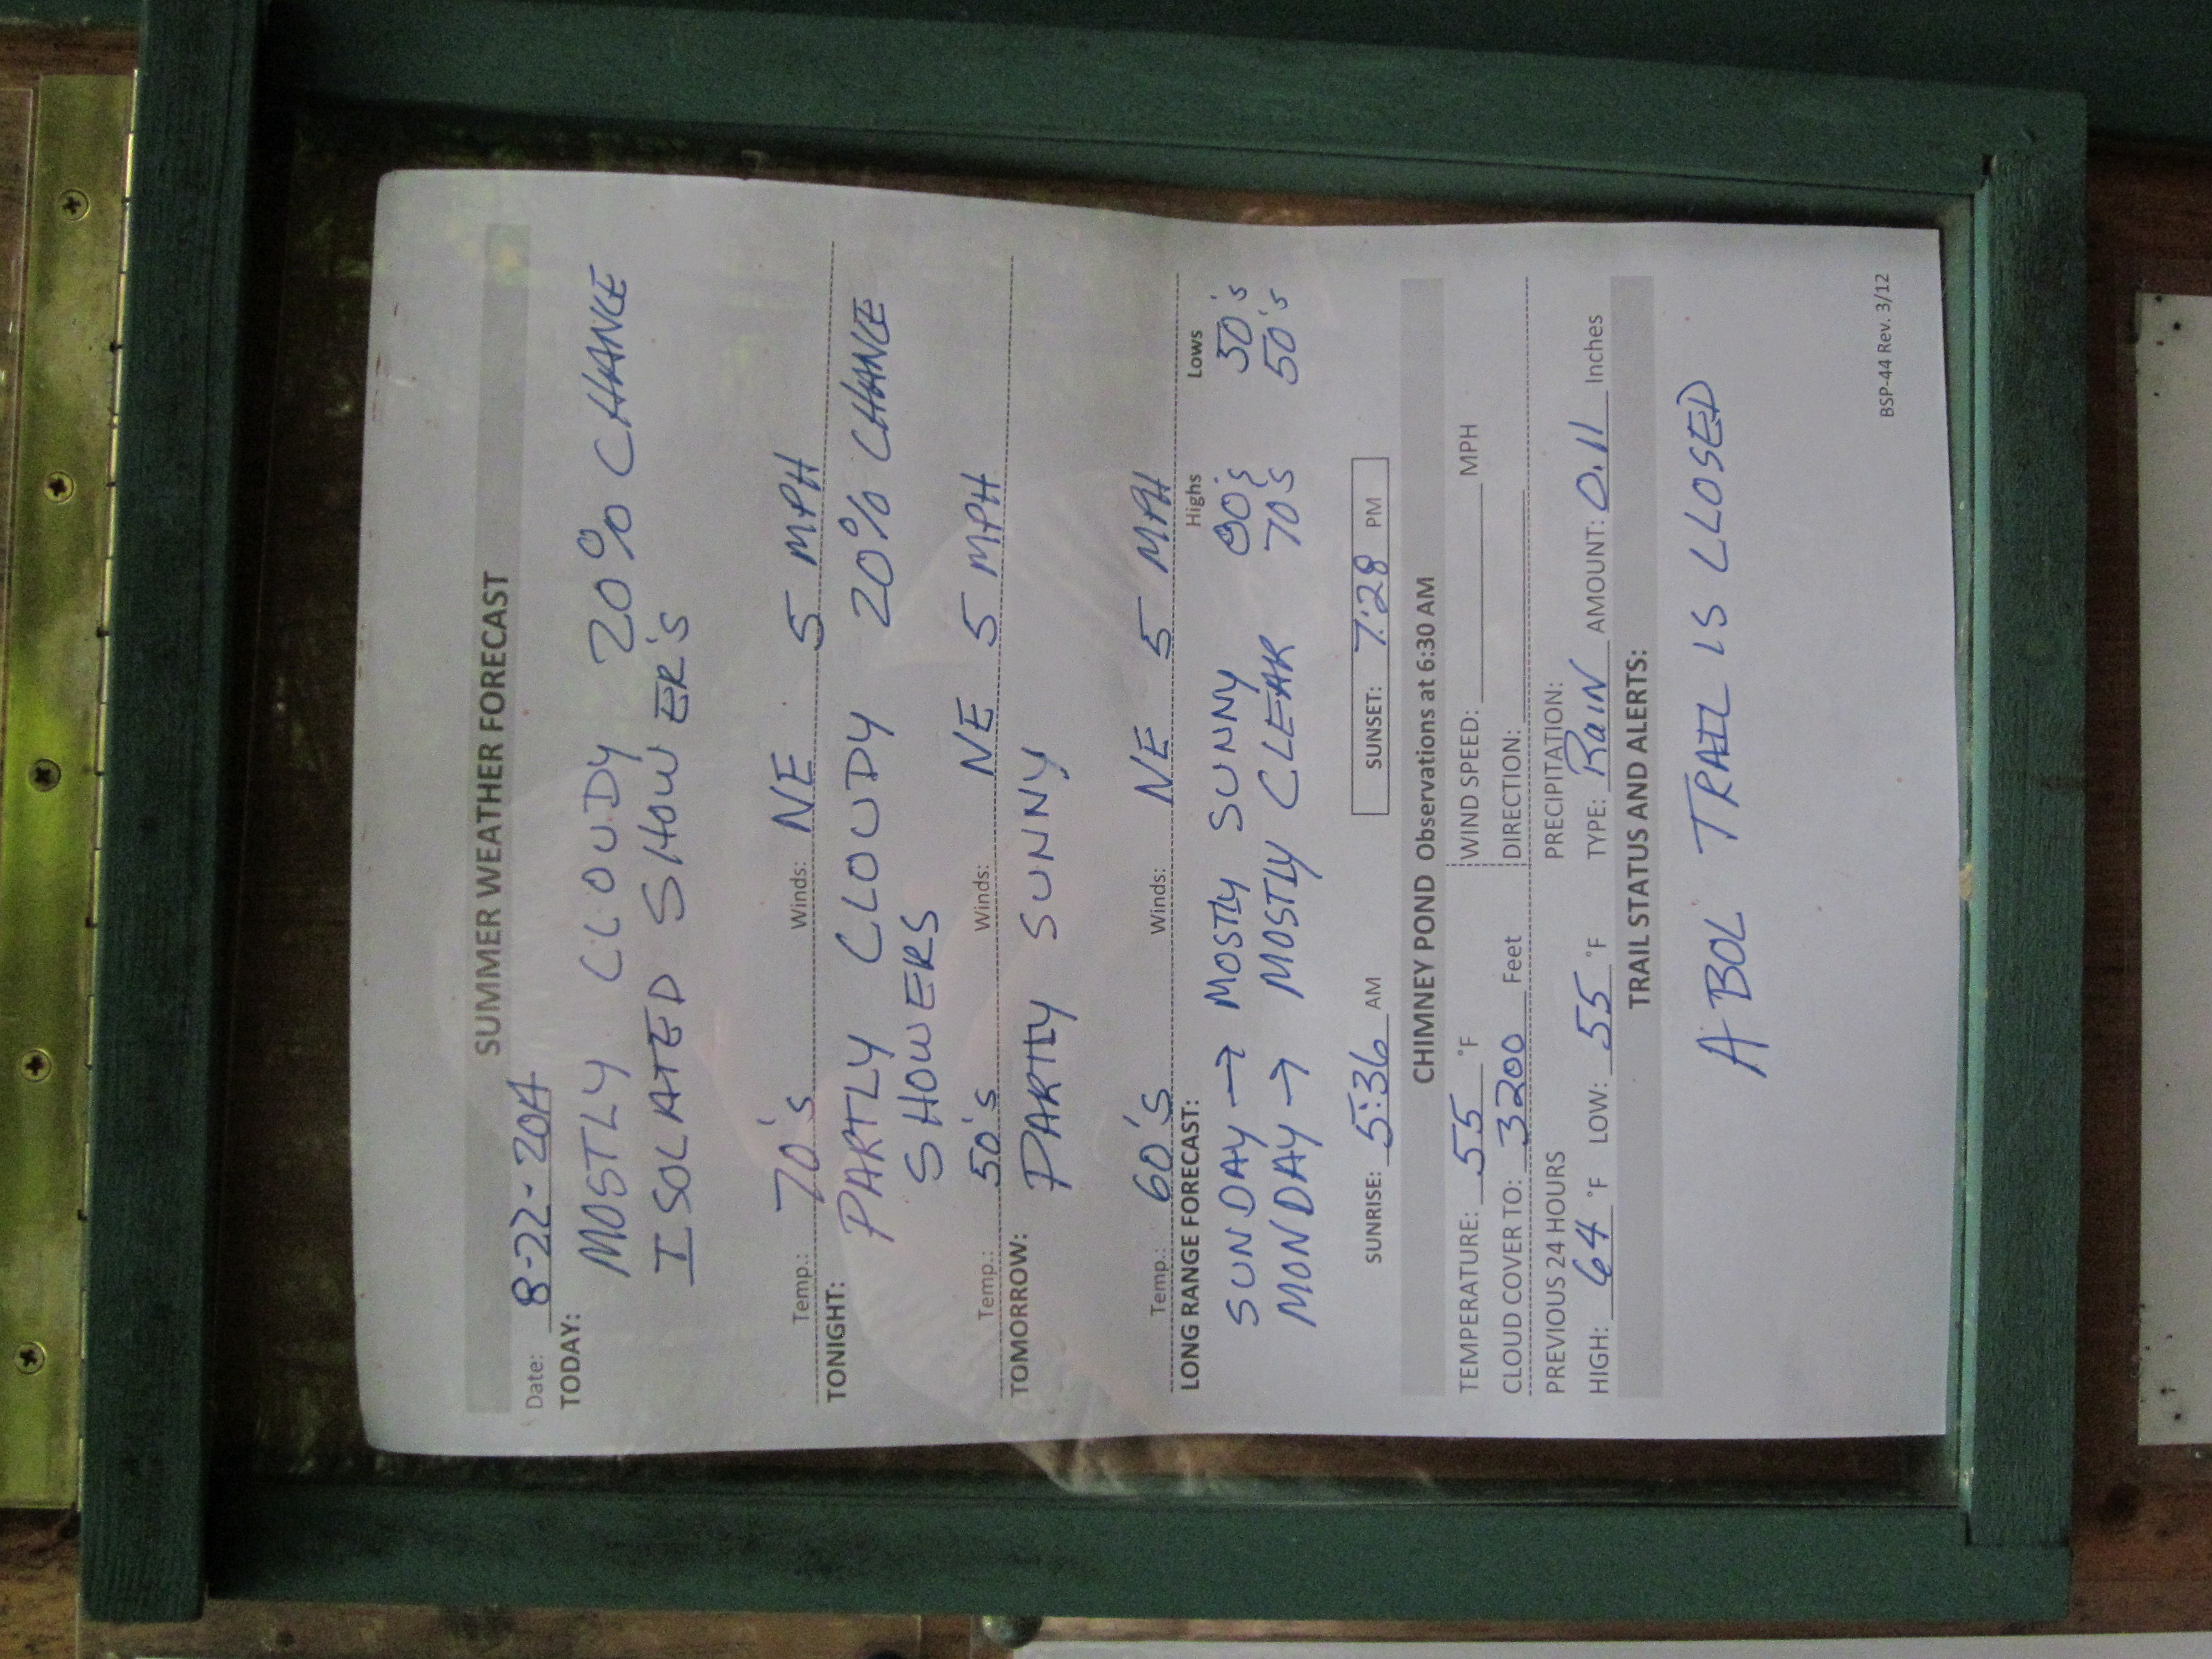 SUMMER WEATHER FORECAST
Date: 8-22-2014
TODAY:
MOSTLY CLOUDY 20% CHANCE
ISOLATED SHOWER'S
Temp.: 70's Winds: NE 5 MPH
TONIGHT:
PARTLY CLOUDY 20% CHANCE
SHOWERS
Temp.: 50's Winds: NE 5 MPH
TOMORROW:
PARTLY SUNNY
Temp.: 60's Winds: NE 5 MPH
LONG RANGE FORECAST: Highs Lows
SUNDAY → MOSTLY SUNNY 80's 50's
MONDAY → MOSTLY CLEAR 70's 50's
SUNRISE: 5:36 AM SUNSET: 7:28 PM
CHIMNEY POND Observations at 6:30 AM
TEMPERATURE: 55 °F WIND SPEED: MPH
CLOUD COVER TO: 3200 Feet DIRECTION:
PREVIOUS 24 HOURS PRECIPITATION:
HIGH: 64 °F LOW: 55 °F TYPE: RAIN AMOUNT: 0.11 Inches
TRAIL STATUS AND ALERTS:
ABOL TRAIL IS CLOSED
BSP-44 Rev. 3/12